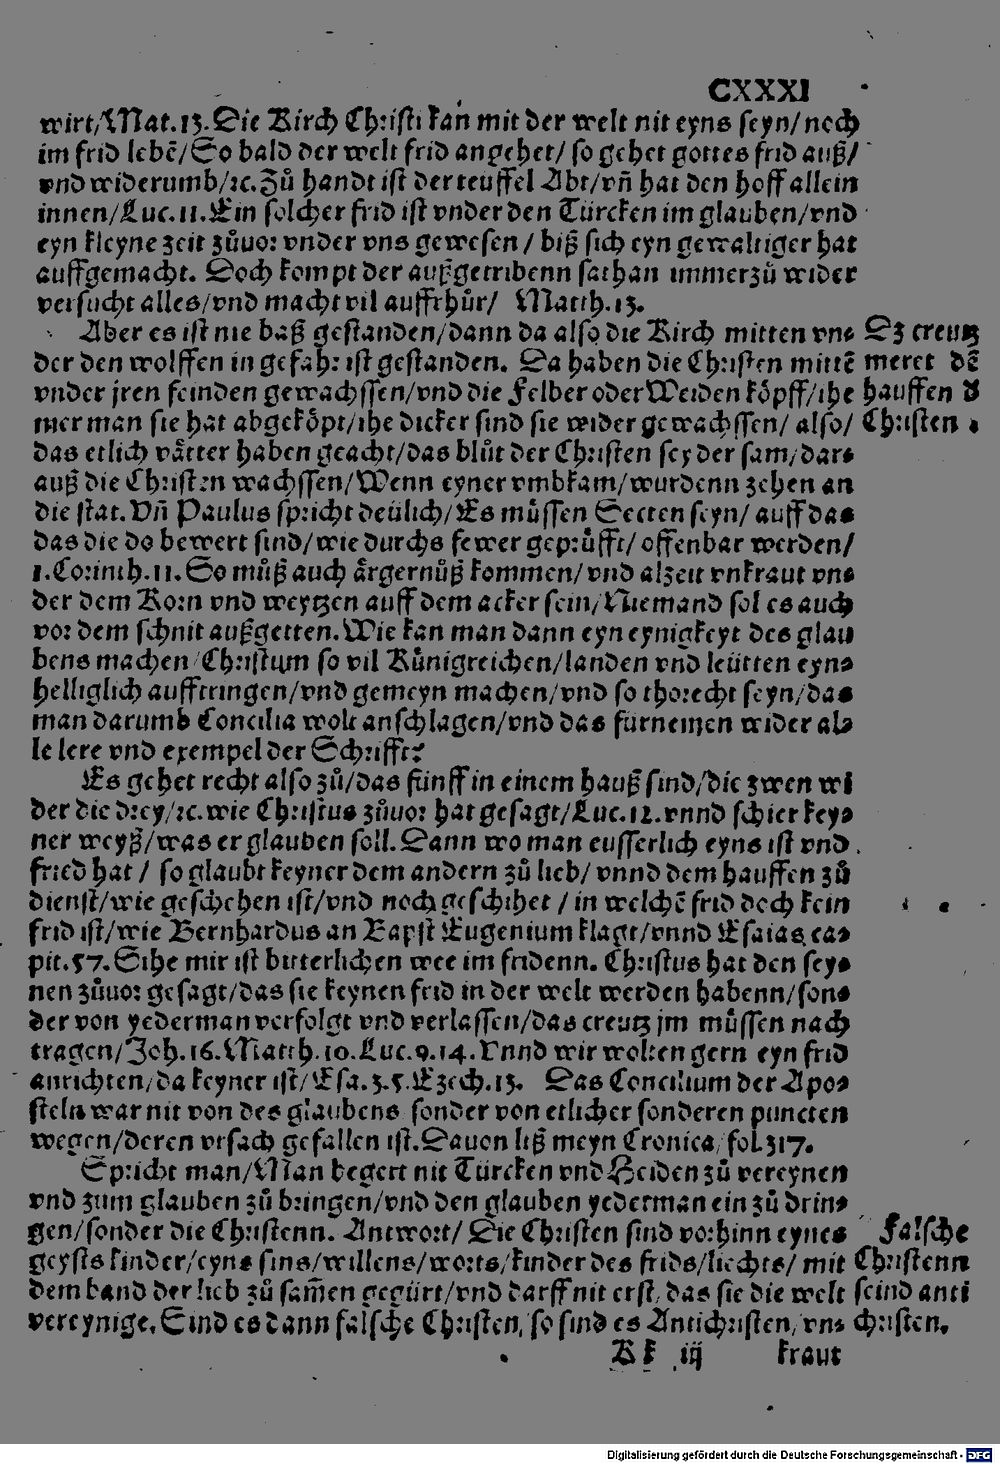 CXXXI
wirt/Mat.13.Die Kirch Christi kan mit der welt nit eyns seyn/noch
im frid lebē/So bald der welt frid angehet/ so gehet gottes frid auß/
vnd widerumb/ꝛc.Zů handt ist der teuffel Abt/vñ hat den hoff allein
innen/Luc.11.Ein solcher frid ist vnder den Türcken im glauben/vnd
eyn kleyne zeit zůuor vnder vns gewesen / biß sich eyn gewaltiger hat
auffgemacht. Doch kompt der außgetribenn sathan immerzů wider
versucht alles/vnd macht vil auffrhůr/ Matth.13.
Aber es ist nie baß gestanden/dann da also die Kirch mitten vn⸗
der den wolffen in gefahr ist gestanden. Da haben die Christen mittē
vnder jren feinden gewachssen/vnd die Felber oder Weiden köpff/ihe
mer man sie hat abgeköpt/ihe dicker sind sie wider gewachssen/ also/
das etlich våtter haben geacht/das blůt der Christen sey der sam/dar⸗
auß die Christen wachssen/Wenn eyner vmbkam/wurdenn zehen an
die stat.Vñ Paulus spricht deülich/Es müssen Secten seyn/ auff das
das die do bewert sind/wie durchs fewer geprüfft/ offenbar werden/
1.Corinth.11.So můß auch ärgernüß kommen/vnd alzeit vnkraut vn⸗
der dem Korn vnd weytzen auff dem acker sein/Niemand sol es auch
vor dem schnit außgetten.Wie kan man dann eyn eynigkeyt des glau
bens machen/Christum so vil Künigreichen/landen vnd leütten eyn⸗
helliglich aufftringen/vnd gemeyn machen/vnd so thorecht seyn/das
man darumb Concilia wolt anschlagen/vnd das fürnemen wider al⸗
le lere vnd exempel der Schrifft?
Es gehet recht also zů/das fünff in einem hauß sind/die zwen wi
der die drey/ꝛc.wie Christus zůuor hat gesagt/Luc.12.vnnd schier key⸗
ner weyß/was er glauben soll.Dann wo man eusserlich eyns ist vnd
fried hat / so glaubt keyner dem andern zů lieb/ vnnd dem hauffen zů
dienst/wie geschehen ist/vnd noch geschihet / in welchē frid doch kein
frid ist/wie Bernhardus an Bapst Eugenium klagt/vnnd Esaias ca⸗
pit.57.Sihe mir ist bitterlichen wee im fridenn. Christus hat den sey⸗
nen zůuor gesagt/das sie keynen frid in der welt werden habenn/son⸗
der von yederman verfolgt vnd verlassen/das creutz jm müssen nach
tragen/Joh.16.Matth.10.Luc.9.14.Vnnd wir wolten gern eyn frid
anrichten/da keyner ist/Esa.3.5.Ezech.13. Das Concilium der Apo⸗
steln war nit von des glaubens sonder von etlicher sonderen puncten
wegen/deren vrsach gefallen ist.Dauon liß meyn Cronica/fol.317.
Spricht man/Man begert nit Türcken vnd Heiden zů vereynen
vnd zum glauben zů bringen/vnd den glauben yederman ein zů drin⸗
gen/sonder die Christenn. Antwort/ Die Christen sind vorhinn eynes
geysts kinder/eyns sins/willens/worts/kinder des frids/liechts/ mit
dem band der lieb zů sam̄en gegürt/vnd darff nit erst, das sie die welt
vereynige.Sind es dann falsche Christen, so sind es Antichristen/vn⸗
Kk iij kraut
Dz creutz
meret dē
hauffen d
Christen.
Falsche
Christenn
seind anti
christen.
Digitalisierung gefördert durch die Deutsche Forschungsgemeinschaft - DFG